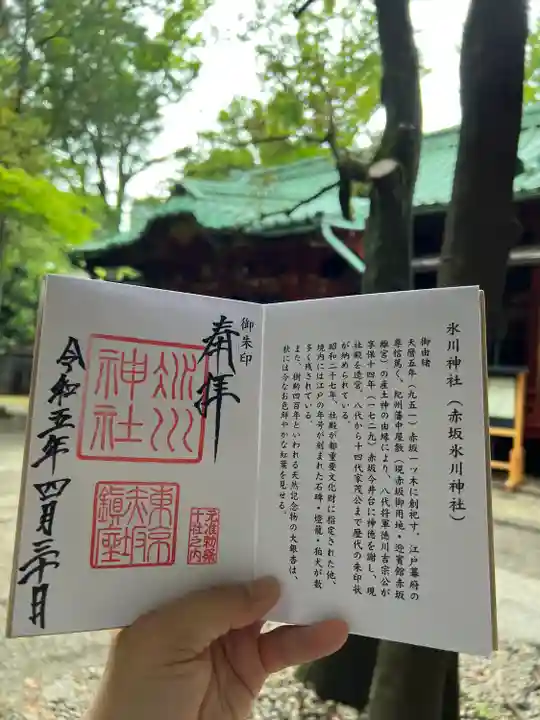 氷川神社（赤坂氷川神社）
御由緒
天暦五年（九五一）赤坂一ツ木に創祀す、江戸幕府の
尊信篤く、紀州藩中屋敷（現赤坂御用地・迎賓館赤坂
離宮）の産土神の由縁により、八代将軍徳川吉宗公が
享保十四年（一七二九）赤坂今井台に神徳を謝し、現
社殿を造営、八代から十四代家茂公まで歴代の朱印状
が納められている。
昭和二十七年、社殿が都重要文化財に指定された他、
境内には江戸の年号が刻まれた石碑・燈籠・狛犬が数
多く残されている。
また、樹齢四百年といわれる天然記念物の大銀杏は、
秋には今なお色鮮やかな紅葉を見せる。
御朱印
奉拝
氷川
神社
東京
赤坂
鎮座
准勅祭
十社之内
令和五年四月三十日